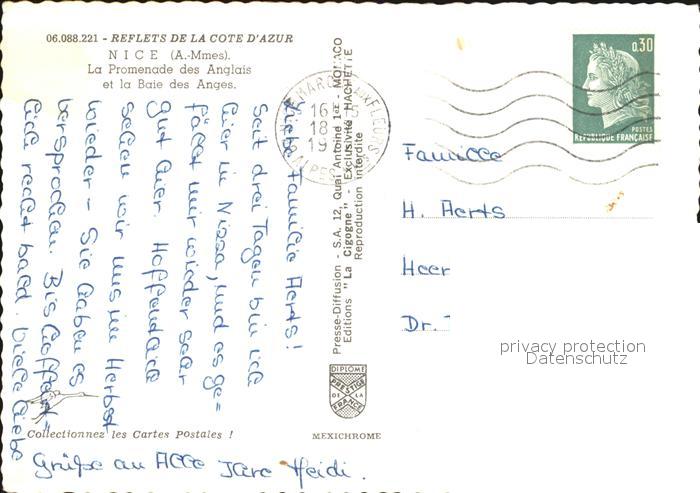 06.088.221 - REFLETS DE LA COTE D'AZUR
NICE (A.-Mmes).
La Promenade des Anglais
et la Baie des Anges.
Liebe Familie Aerts!
Seit drei Tagen bin ich
hier in Nizza, und es ge=
fällt mir wieder sehr
gut hier. Hoffentlich
sehen wir uns im Herbst
wieder - Sie haben es
versprochen. Bis hoffent=
lich recht bald. Viele liebe
Grüße an Alle Ihre Heidi.
Collectionnez les Cartes Postales !
Presse-Diffusion - S.A. 12, Quai Antoine 1er - MONACO
Editions "La Cigogne" - Exclusivité HACHETTE
Reproduction interdite
DIPLOME
PRESTIGE
DE LA
FRANCE
MEXICHROME
MARCHE AUX FLEURS
16
18
19
0,30
POSTES
REPUBLIQUE FRANÇAISE
Familie
H. Aerts
Heer
Dr.
privacy protection
Datenschutz